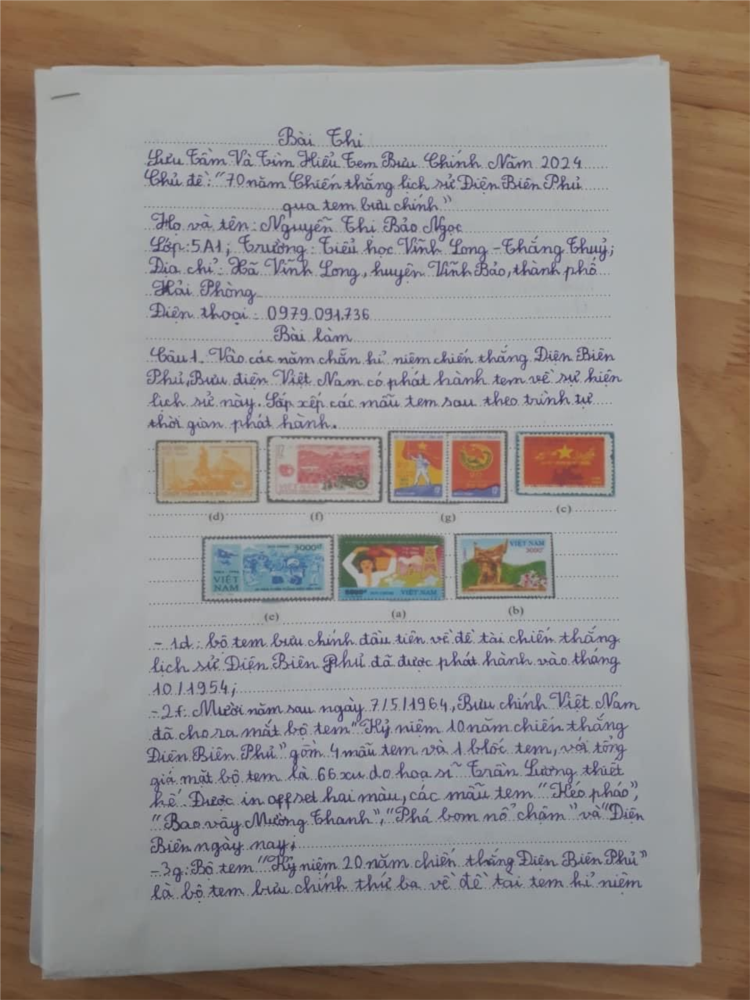 Bài Thi
Sưu Tầm Và Tìm Hiểu Tem Bưu Chính Năm 2024
Chủ đề: "70 năm Chiến thắng lịch sử Điện Biên Phủ
qua tem bưu chính"
Họ và tên: Nguyễn Thị Bảo Ngọc
Lớp: 5A1; Trường: Tiểu học Vĩnh Long - Thắng Thuỷ;
Địa chỉ: Xã Vĩnh Long, huyện Vĩnh Bảo, thành phố
Hải Phòng
Điện thoại: 0979.091.736
Bài làm
Câu 1. Vào các năm chẵn kỉ niệm chiến thắng Điện Biên
Phủ, Bưu điện Việt Nam có phát hành tem về sự kiện
lịch sử này. Sắp xếp các mẫu tem sau theo trình tự
thời gian phát hành.
(d) (f) (g) (c)
VIỆT NAM 3000đ VIỆT NAM VIỆT NAM
(e) (a) (b)
- 1d: bộ tem bưu chính đầu tiên về đề tài chiến thắng
lịch sử Điện Biên Phủ đã được phát hành vào tháng
10/1954;
- 2f: Mười năm sau ngày 7/5/1964, Bưu chính Việt Nam
đã cho ra mắt bộ tem "Kỷ niệm 10 năm chiến thắng
Điện Biên Phủ" gồm 4 mẫu tem và 1 blốc tem, với tổng
giá mặt bộ tem là 66 xu do hoạ sĩ Trần Lương thiết
kế. Được in offset hai màu, các mẫu tem "Kéo pháo",
"Bao vây Mường Thanh", "Phá bom nổ chậm" và "Điện
Biên ngày nay;
- 3g: Bộ tem "Kỷ niệm 20 năm chiến thắng Điện Biên Phủ"
là bộ tem bưu chính thứ ba về đề tài tem kỉ niệm